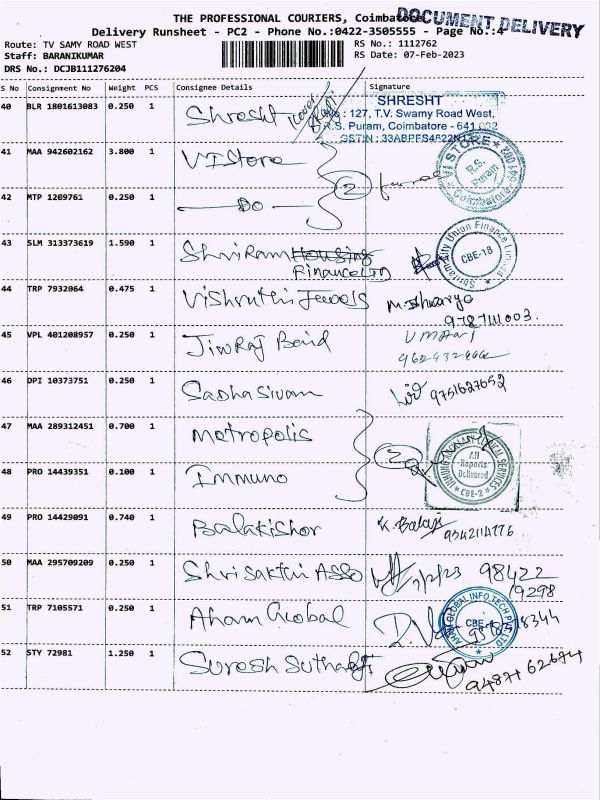 THE PROFESSIONAL COURIERS, Coimbatore
DOCUMENT DELIVERY
Delivery Runsheet - PC2 - Phone No.:0422-3505555 - Page No.:4
Route: TV SAMY ROAD WEST
RS No.: 1112762
Staff: BARANIKUMAR
RS Date: 07-Feb-2023
DRS No.: DCJB111276204
S No Consignment No Weight PCS Consignee Details Signature
40 BLR 1801613083 0.250 1 Shresht
SHRESHT
No : 127, T.V. Swamy Road West,
R.S. Puram, Coimbatore - 641 002
GSTIN : 33ABPFS4622N1
41 MAA 942602162 3.800 1 VIStore
VISTORE R.S. Puram Coimbatore - 641 002
2
42 MTP 1209761 0.250 1 Do
43 SLM 313373619 1.590 1 Shriram Housing
Finance LTD
Shriram City Union Finance Limited CBE-18
44 TRP 7932064 0.475 1 Vishruthi Jewels
9787111003.
45 VPL 401208957 0.250 1 Jiwraj Baid
46 DPI 10373751 0.250 1 Sadhasivam 9751627652
47 MAA 289312451 0.700 1 Metropolis
2
All Reports Delivered CBE-2
48 PRO 14439351 0.100 1 Immuno
49 PRO 14429091 0.740 1 Balakishor K. Balaji
9342114776
50 MAA 295709209 0.250 1 Shri Sakthi Asso 7/2/23 98422
19298
51 TRP 7105571 0.250 1 Aham Global
AHAM GLOBAL INFO TECH PVT LTD CBE
52 STY 72981 1.250 1 Suresh Sutharji